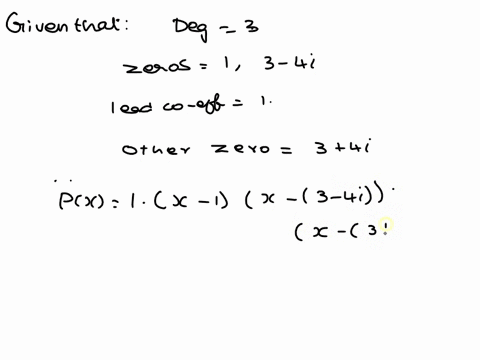 Given that: Deg = 3
zeros = 1, 3-4i
lead co-eff = 1.
other zero = 3+4i
∴ P(x) = 1. (x-1) (x-(3-4i)).
(x-(3